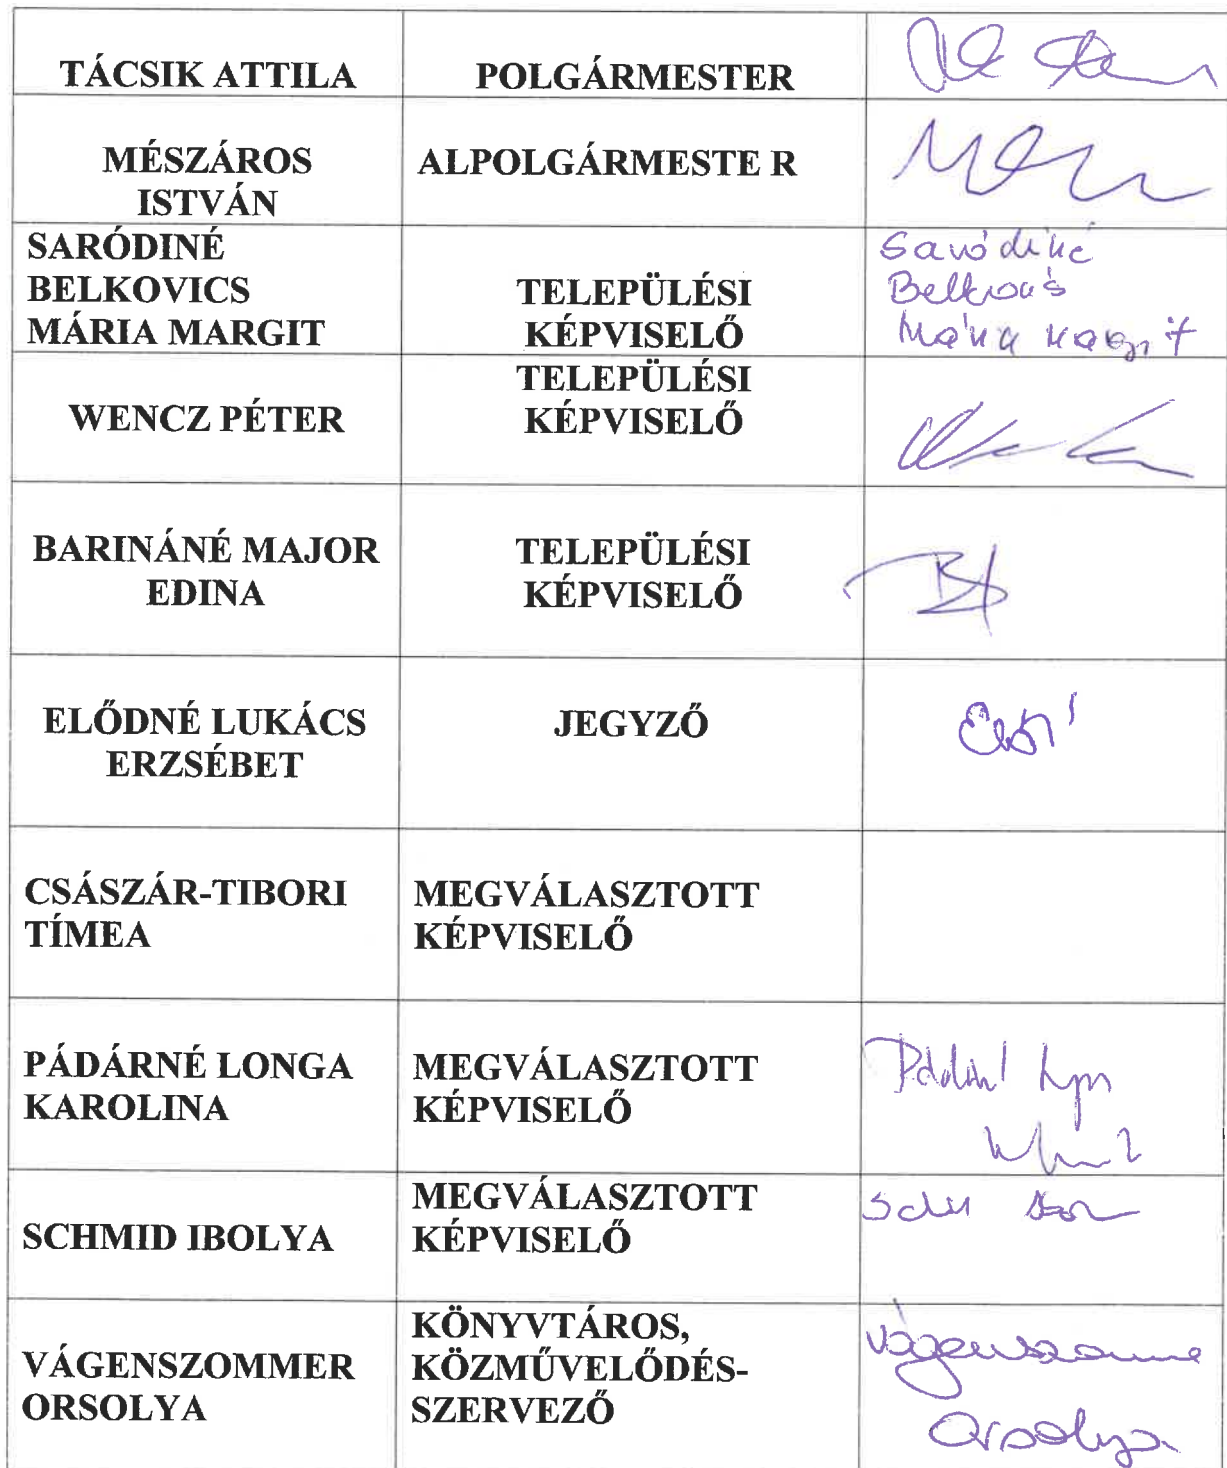 TÁCSIK ATTILA POLGÁRMESTER
MÉSZÁROS ALPOLGÁRMESTE R
ISTVÁN
SARÓDINÉ
BELKOVICS
MÁRIA MARGIT
TELEPÜLÉSI
KÉPVISELŐ
Saródiné
Belkovics
Mária Margit
WENCZ PÉTER
TELEPÜLÉSI
KÉPVISELŐ
BARINÁNÉ MAJOR
EDINA
TELEPÜLÉSI
KÉPVISELŐ
ELŐDNÉ LUKÁCS
ERZSÉBET
JEGYZŐ
CSÁSZÁR-TIBORI
TÍMEA
MEGVÁLASZTOTT
KÉPVISELŐ
PÁDÁRNÉ LONGA
KAROLINA
MEGVÁLASZTOTT
KÉPVISELŐ
SCHMID IBOLYA
MEGVÁLASZTOTT
KÉPVISELŐ
VÁGENSZOMMER
ORSOLYA
KÖNYVTÁROS,
KÖZMŰVELŐDÉS-
SZERVEZŐ
Orsolya